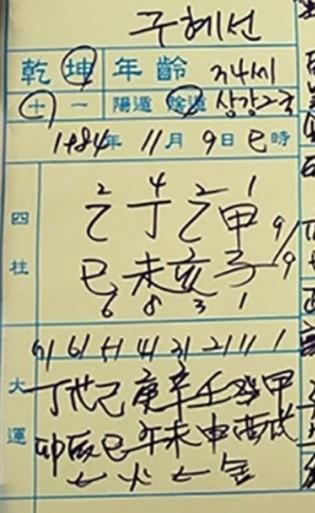 구혜선
乾 坤 年 齡 34세
十 一 陽遁 陰遁 상강2국
1984年 11月 9日 巳時
2 4 2 1
乙 丁 乙 甲 9/9
四柱
巳 未 亥 子
6 8 3 1
71 61 51 41 31 21 11 1
丁 戊 己 庚 辛 壬 癸 甲
大運
卯 辰 巳 午 未 申 酉 戌
← 火 ← 金